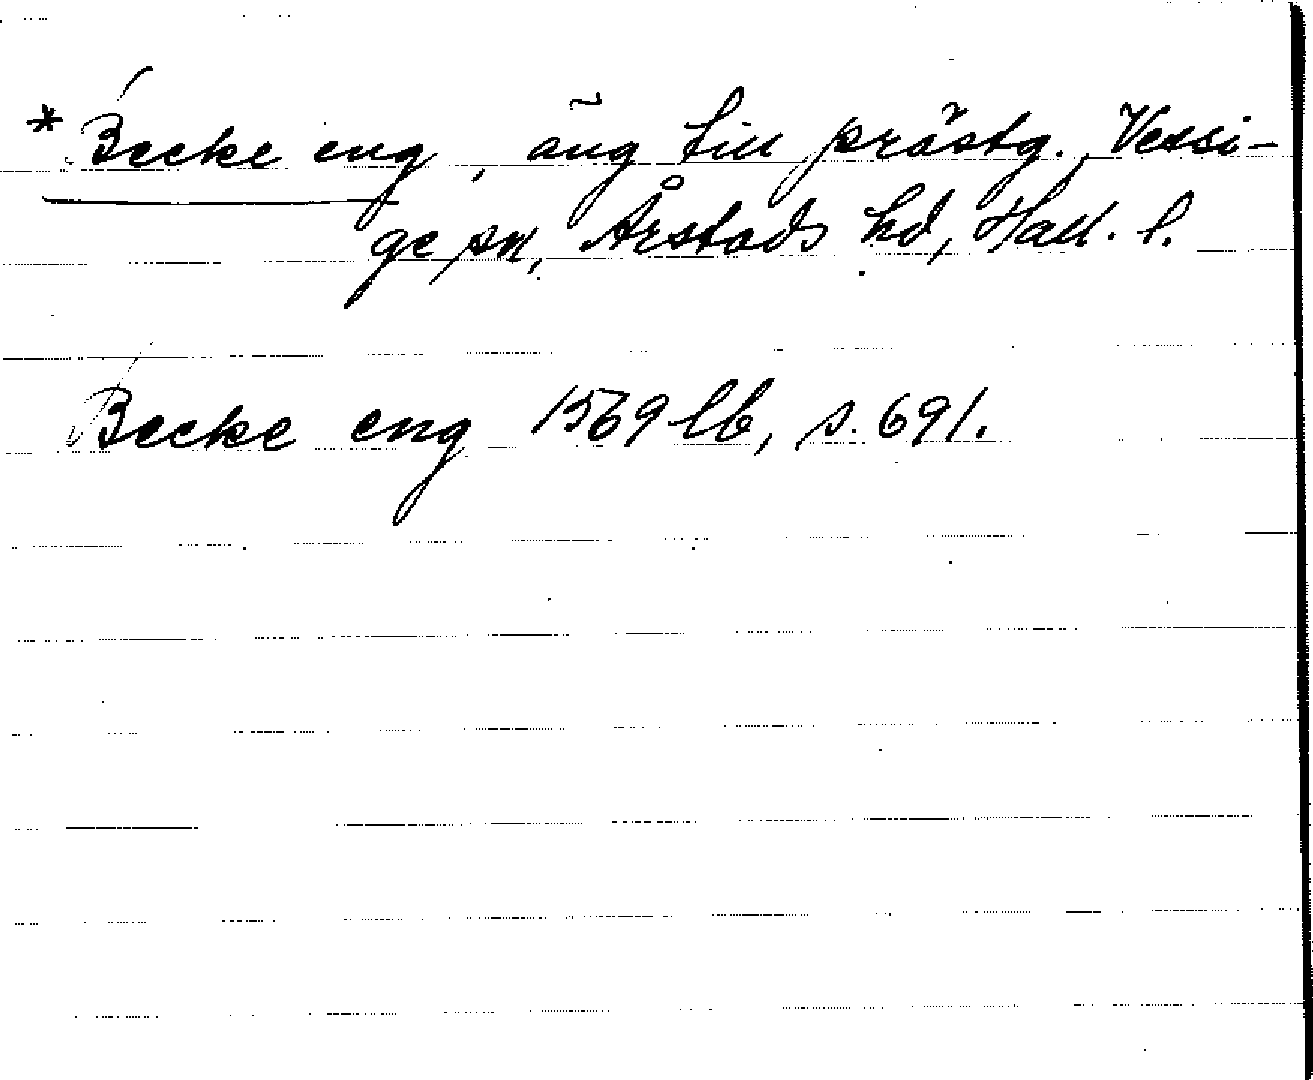 * Becke eng, äng till prästg., Vessi-
ge sn, Årstads hd, Hall. l.
Becke eng 1569 lb, s. 691.